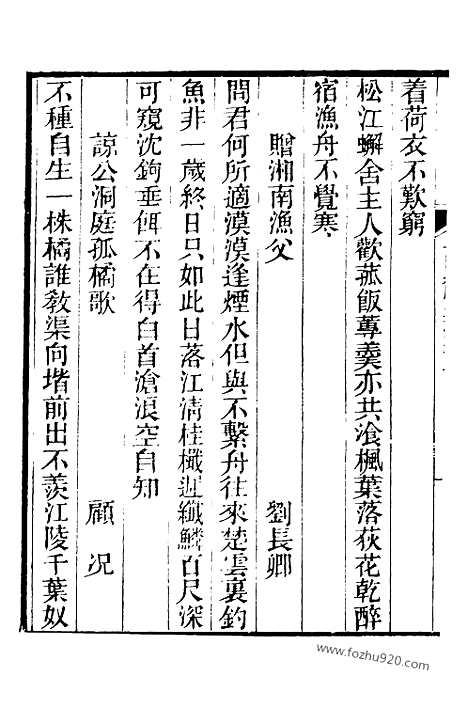 着荷衣不歎窮
松江蠏舍主人歡菰飯蓴羹亦共飡楓葉落荻花乾醉
宿漁舟不覺寒
贈湘南漁父 劉長卿
問君何所適漠漠逢煙水但與不繫舟往來楚雲裏釣
魚非一歲終日只如此日落江清桂檝遲纖鱗百尺深
可窺沈鉤垂餌不在得白首滄浪空自知
諒公洞庭孤橘歌 顧况
不種自生一株橘誰敎渠向堦前出不羨江陵千葉奴
www.fozhu920.com